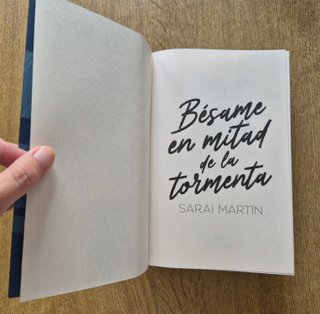 Bésame
en mitad
de la
tormenta
SARAI MARTÍN